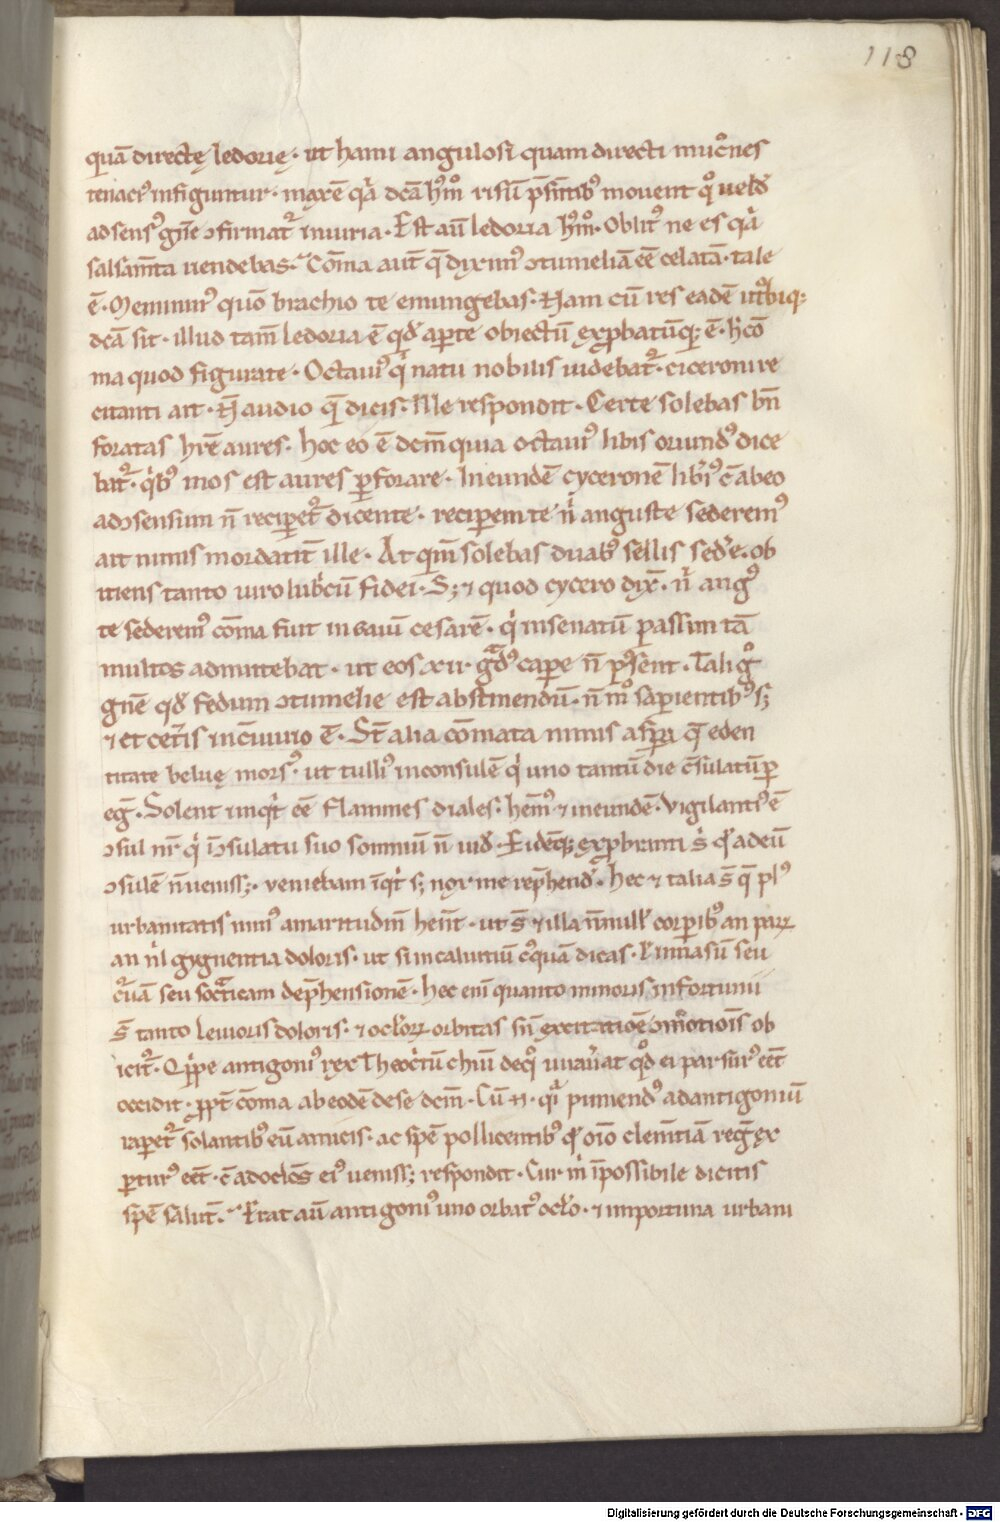 118
quā directę ledorię · ut hami angulosi quam directi muc̄nes
tenaci᷒ infiguntur · maxē qͥa dc̄a hͥmͦ risū p̄sētibꝰ mouent qͦ ueld̄
ad sensꝰ gn̄e ɔfirmat᷑ iniuria · Est aū ledoria hͥmͦ · Oblitꝰ ne es qͥa
salsam̄ta uendebas · Com̄a aut̄ q̄ diximꝰ ɔtumeliā eē celatā · tale
ē · Meminimꝰ quō brachio te emungebas · Nam cū res eadē utͦbiq;
dc̄a sit · illud tam̄ ledoria ē qd̄ aperte obiectū exprobatūq; ē · h̊ cō
ma quod figurate · Octauiꝰ qͥ natu nobilis uidebat᷑ · ciceroni re
citanti ait · N̄ audio q̄ dicis · Ille respondit · Certe solebas bn̄
foratas hr̄e aures · hoc eo ē dcm̄ quia octauiꝰ libis oriundꝰ dice
bat᷑ · qͥbꝰ mos est aures ꝑforare · In eundē cyceronē libiꝰ c̄ ab eo
ad ɔsensum n̄ reciꝑet᷑ dicente · reciꝑem te nͥ anguste sederemꝰ
ait nimis mordacit̄ ille · At qm̄ solebas duabꝰ sellis sed̄e · ob
iciens tanto uiro lubͥcū fidei · S; ⁊ quod cycero dix̄ · nͥ angꝰ
te sederemꝰ com̄a fuit in gaiū cesarē · qͥ in senatū passim tā
multos admittebat · ut eos xii · gͣdꝰ caꝑe n̄ pꝰsent · Tali gͦ
gn̄e qd̄ fedum ɔtumelie est abstinendū · n̄ mͦ sapientibꝰ s;
⁊ et cet̄is in c̄uiuio ē · St̄ alia com̄ata minus aspera q̄ eden
titate beluę morsꝰ · ut tulliꝰ in consulē qͥ uno tantū die c̄sulatū ꝑ
eḡ · Solent inqͥt eē flamines diales · hem̄ꝰ ⁊ in eundē · Vigilantisꝰ ē
ɔsul nr̄ qͥ ī ɔsulatu suo somniū n̄ uid̄ · Eidēq; exprobranti s̄ ꝙ ad eū
ɔsulē n̄ uenisse; · veniebam īqͥt s; nox me rep̄hend̄ · hec ⁊ talia s̄ q̄ plꝰ
urbanitatis minꝰ amaritudin̄ hen̄t · ut s̄ ⁊ illa n̄null̄ corꝑibꝰ an paꝝ
an nͥl gignentia doloris · ut si in caluitiū c̄quā dicas · l̄ in nasū seu
c̄uā seu socͣticam dep̄hensionē · hec eni quanto minoris infortunii
s̄ tanto leuioris doloris · ⁊ ocloꝝ orbitas sn̄ excitatiōe ɔmotiōis ob
icit᷑ · Qͥppe antigonꝰ rex Theocͥtū chiū de qͦ iurau̓at qd̄ ei parsurꝰ eēt
occidit · ꝓpt̄ com̄a ab eodē de se dcm̄ · Cū ·n̄· qͣi puniendꝰ ad antigoniū
raperet᷑ solantibꝰ eū amicis · ac spē pollicentibꝰ ꝙ oīo clem̄tiā reḡ ex
ꝑturꝰ eēt · c̄ ad oclos eiꝰ uenisse; respondit · Cur mͥ īpossibile dicitis
spē salut̄ · Erat aū antigonꝰ uno orbatꝰ oclo · ⁊ importuna urbani
Digitalisierung gefördert durch die Deutsche Forschungsgemeinschaft · DFG